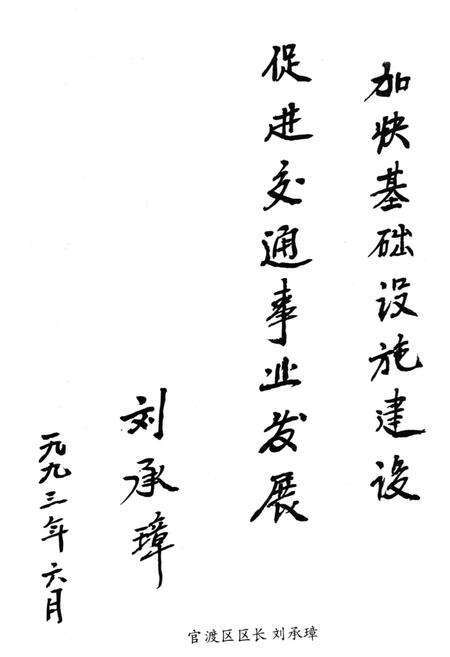 加快基础设施建设
促进交通事业发展
刘承璋
一九九三年六月
官渡区区长 刘承璋